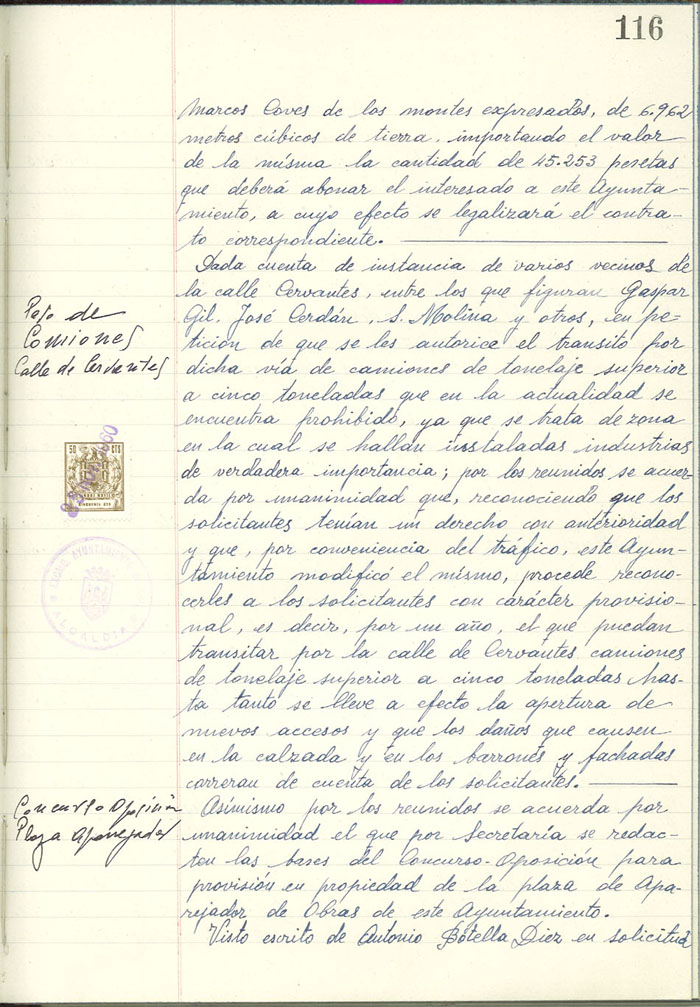 116
Marcos Coves de los montes expresados, de 6.962
metros cúbicos de tierra, importando el valor
de la misma la cantidad de 45.253 pesetas
que deberá abonar el interesado a este Ayunta-
miento, a cuyo efecto se legalizará el contra-
to correspondiente.
Paso de
Camiones
Calle de Cervantes
Dada cuenta de instancia de varios vecinos de
la calle Cervantes, entre los que figuran Gaspar
Gil, José Cerdán, S. Molina y otros, en pe-
tición de que se les autorice el transito por
dicha vía de camiones de tonelaje superior
a cinco toneladas que en la actualidad se
encuentra prohibido, ya que se trata de zona
en la cual se hallan instaladas industrias
de verdadera importancia; por los reunidos se acuer-
da por unanimidad que, reconociendo que los
solicitantes tenían un derecho con anterioridad
y que, por conveniencia del tráfico, este Ayun-
tamiento modificó el mismo, procede recono-
cerles a los solicitantes con carácter provisio-
nal, es decir, por un año, el que puedan
transitar por la calle de Cervantes camiones
de tonelaje superior a cinco toneladas has-
ta tanto se lleve a efecto la apertura de
nuevos accesos y que los daños que causen
en la calzada y en los barrones y fachadas
correran de cuenta de los solicitantes.
50 CTS
AYUNTAMIENTO
ALCALDIA
Concurso Oposición
Plaza Aparejador
Asimismo por los reunidos se acuerda por
unanimidad el que por Secretaría se redac-
ten las bases del Concurso-Oposición para
provisión en propiedad de la plaza de Apa-
rejador de Obras de este Ayuntamiento.
Visto escrito de Antonio Botella Diez en solicitud